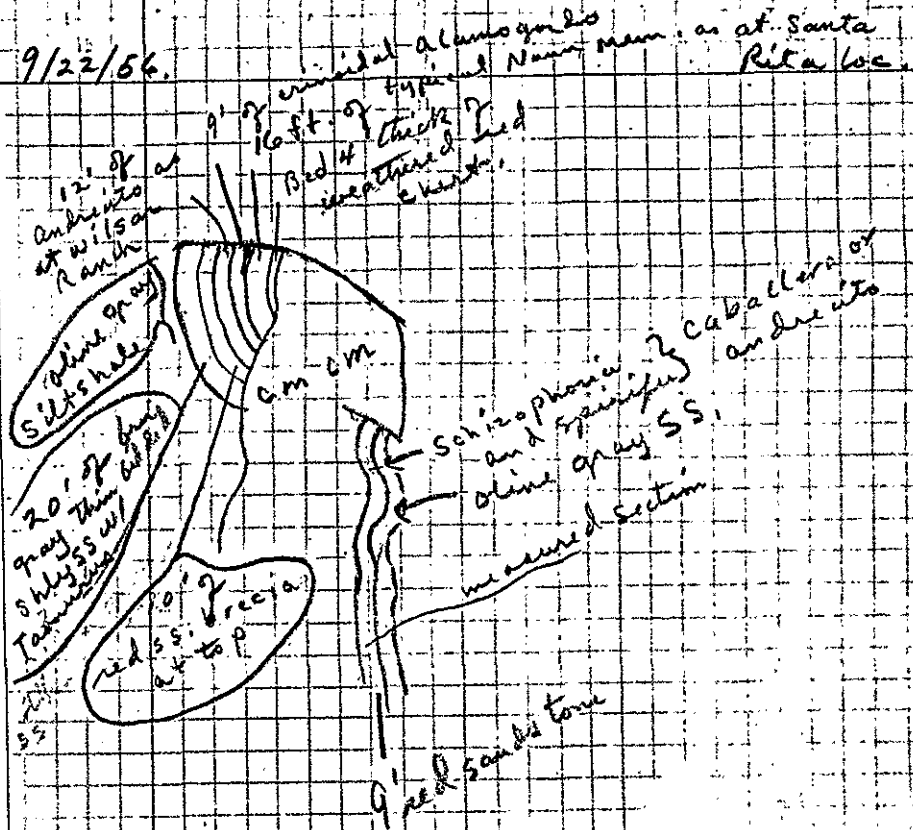 9/22/56.
9' of crinoidal alamogordo
16 ft. of typical Nunn mem. as at Santa
Rita loc.
Bed 4 thick of
weathered red
chert.
12' of
andrecito as
at wilson
Ranch
oline gray
siltshale
20' of
gray thin bedded
shly SS w/
Taonurus
SS
10' of
red ss. brecia
at top
cm cm
Schizophoria
and spirifer
} Caballero or
andrecito
oline gray SS.
measured section
9' red sandstone